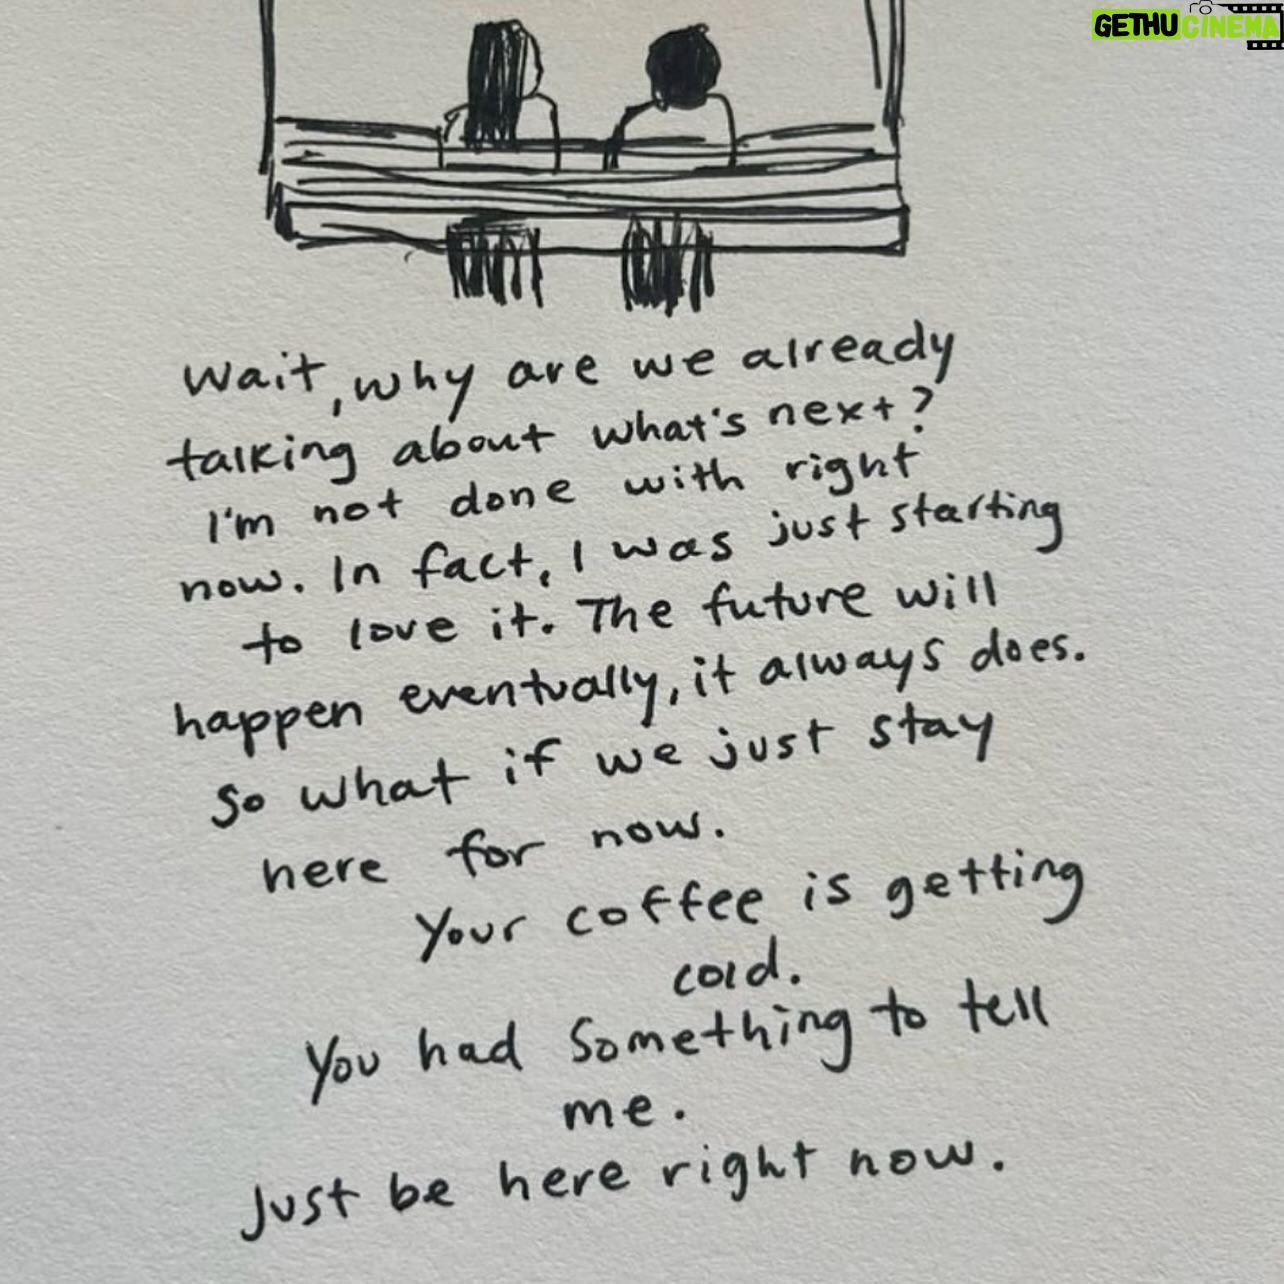 GETHUCINEMA
Wait, why are we already
talking about what's next?
I'm not done with right
now. In fact, I was just starting
to love it. The future will
happen eventually, it always does.
So what if we just stay
here for now.
Your coffee is getting
cold.
You had something to tell
me.
Just be here right now.